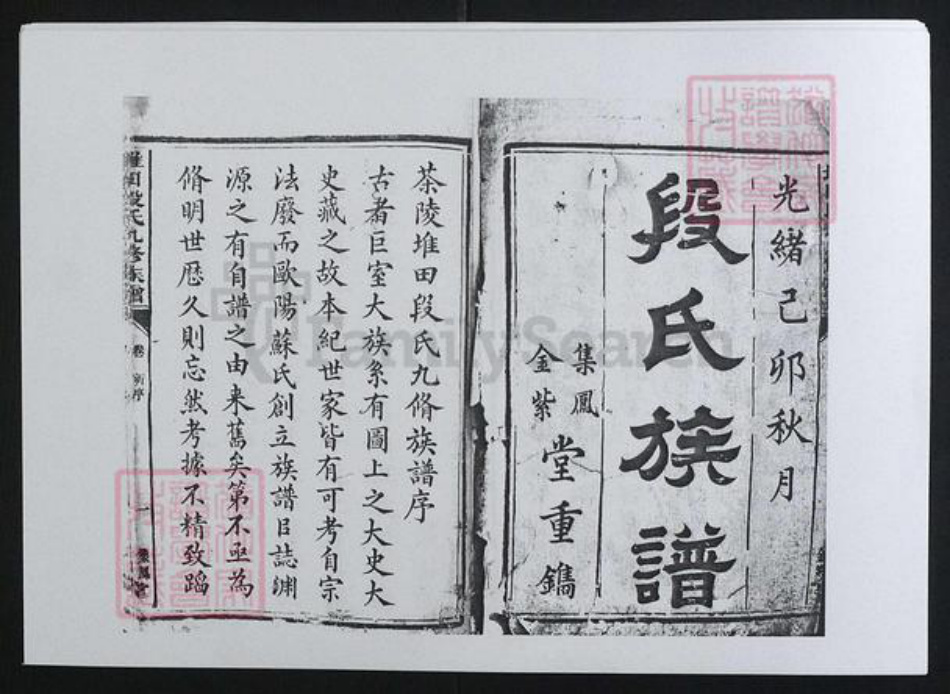 光緒己卯秋月
段氏族譜
集鳳
金紫
堂重鐫
茶陵堆田段氏九脩族譜序
古者巨室大族系有圖上之大史大
史藏之故本紀世家皆有可考自宗
法廢而歐陽蘇氏創立族譜㠯誌淵
源之有自譜之由来舊矣第不亟為
脩明世歴久則忘然考據不精致蹈
堆田段氏九修族譜
卷
新序
一
集鳳堂
FamilySearch